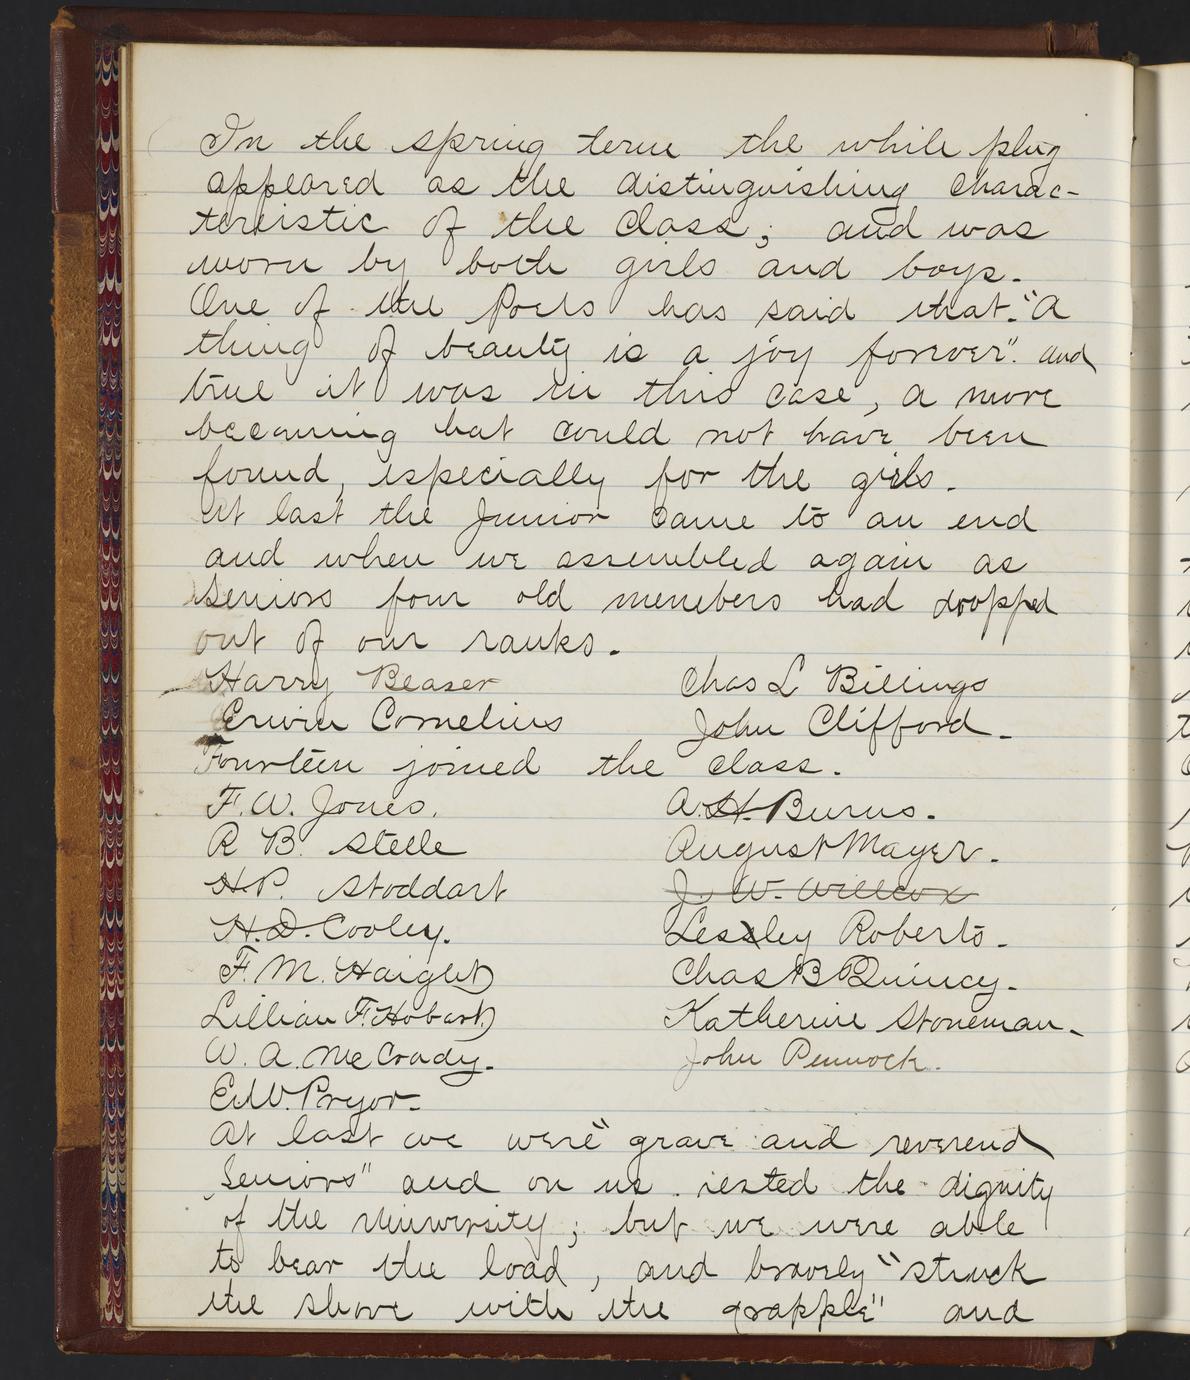 In the spring term the while plug
appeared as the distinguishing charac-
teristic of the class; and was
worn by both girls and boys.
One of the Poets has said that. "A
thing of beauty is a joy forever". and
true it was in this case, a more
becoming hat could not have been
found, especially for the girls.
At last the Junior came to an end
and when we assembled again as
Seniors four old members had dropped
out of our ranks.
Harry Beaser Chas L Billings
Erwin Cornelius John Clifford.
Fourteen joined the class.
F. W. Jones. A. H. Burns.
R B. Steele August Mayer.
H. P. Stoddart J. W. Willcox
H. D. Cooley. Lessley Roberts.
F. M. Haight Chas B Quincy.
Lillian F. Hobart Katherine Stoneman.
W. A. McCrady. John Pennock.
E. W. Pryor.
At last we were "grave and reverend
Seniors" and on us rested the dignity
of the University; but we were able
to bear the load, and bravely "struck
the shore with the grapple" and